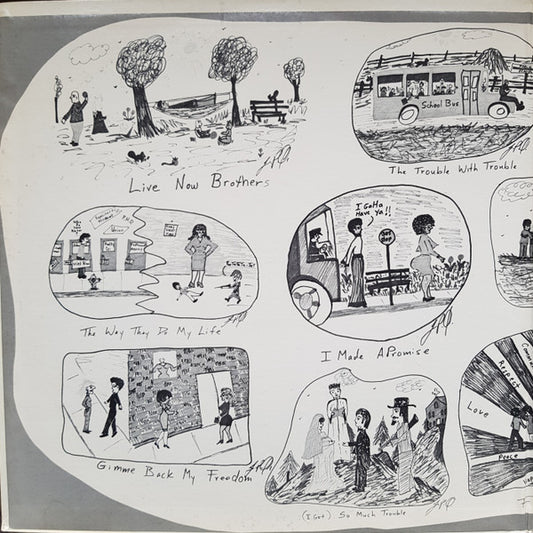 School Bus
Live Now Brothers
The Trouble With Trouble
I Gotta
Have Ya!!
BUS
STOP
The Way They Do My Life
I Made A Promise
Gimme Back My Freedom
Respect
Love
Peace
(I Got) So Much Trouble